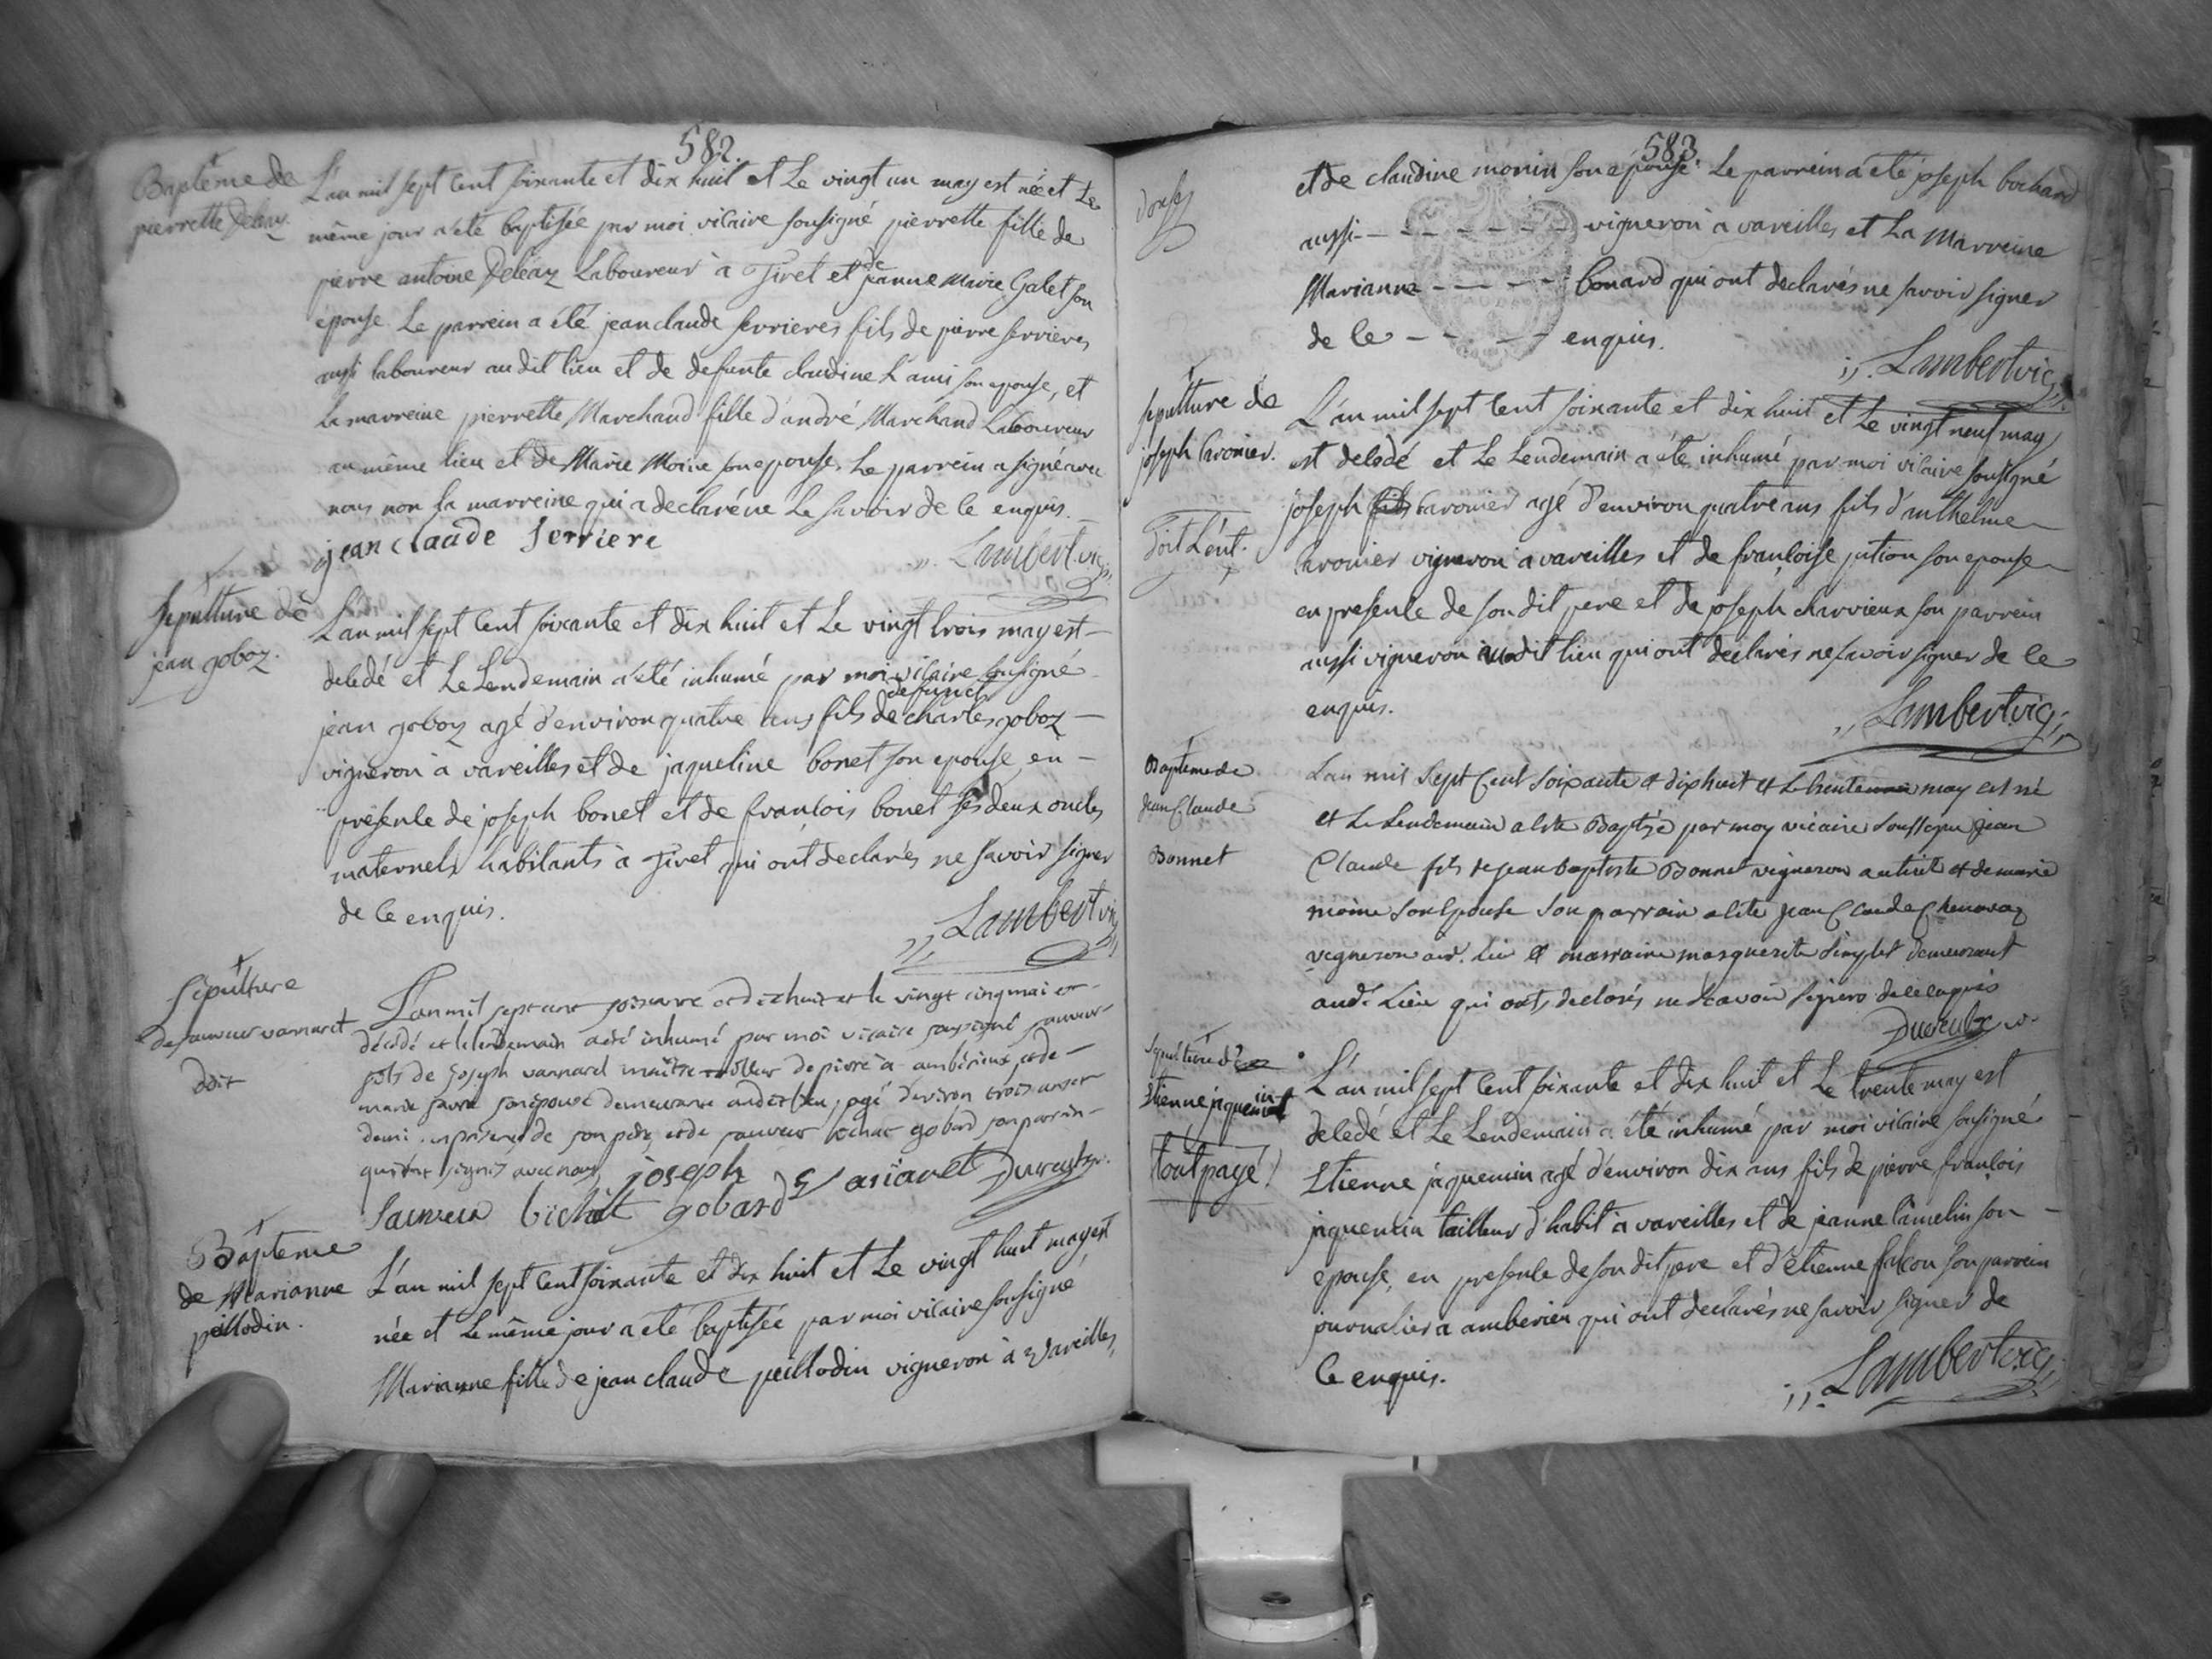 582.
Baptême de
pierrette Deléaz.
L'an mil sept cent soixante et dix huit et Le vingt un may est née et Le
même jour a été baptisée par moi vicaire sousigné pierrette fille de
pierre antoine Deléaz Laboureur à Tiret et de jeanne Marie Galet son
épouse Le parrein a été jean claude serrieres fils de pierre serrieres
aussi laboureur audit lieu et de defunte claudine L'ami son epouse, et
la marreine pierrette Marchand fille d'andré Marchand Laboureur
au même lieu et de Marie Moine son epouse, Le parrein a signé avec
nous non la marreine qui a declaré ne Le savoir de ce enquis.
jean claude serriere
Lambert vic.
Sepulture de
jean goboz.
L'an mil sept cent soixante et dix huit et Le vingt trois may est
decedé et Le Lendemain a été inhumé par moi vicaire sousigné
jean goboz agé d'environ quatre ans fils de defunct charles goboz
vigneron à vareilles et de jaqueline bonet son epouse, en
presence de joseph bonet et de francois bonet ses deux oncles
maternels habitants à Tiret qui ont declarés ne savoir signer
de ce enquis.
Lambert vic
Sepulture
de sauveur varnaret
doit
L'an mil sept cent soixante et dix huit et le vingt cinq mai est
décédé et le lendemain a été inhumé par moi vicaire sousigné sauveur
fils de Joseph varnaret maître de pierre à ambérieux et de
marie favre son épouse demeurant audit lieu, agé d'environ trois ans et
demi. en presence de son père, et de sauveur bichat gobard son parrin
qui ont signés avec nous, joseph Dureult v.
Sauveur bichat gobard
Baptême
de Marianne
peillodin.
L'an mil sept cent soixante et dix huit et Le vingt huit may est
née et Le même jour a été baptisée par moi vicaire sousigné
Marianne fille de jean claude peillodin vigneron à Vareilles,
583
et de claudine monin son epouse. Le parrein a été joseph bochard
aussi - - - - - - - vigneron à vareilles et La Marreine
Marianne - - - - - bonard qui ont declarés ne savoir signer
de ce - - - - enquis.
Lambert vic
sepulture de
joseph baronier.
Doit L'ent.
L'an mil sept cent soixante et dix huit et Le vingt neuf may
est decedé et Le Lendemain a été inhumé par moi vicaire sousigné
joseph fils baronier agé d'environ quatre ans fils d'anthelme
baronier vigneron à vareilles et de francoise jution son epouse
en presence de son dit pere et de joseph charvieux son parrein
aussi vigneron audit lieu qui ont declarés ne savoir signer de ce
enquis.
Lambert vic
Baptême de
Jean Claude
Bonnet
L'an mil Sept Cent Soixante et dixhuit et Le trente may est né
et Le Lendemain a été Baptisé par moy vicaire Soussigné Jean
Claude fils de Jean baptiste Bonnet vigneron a tiret et de marie
moine Son Epouse Son parrain a été Jean Claude Chenavaz
vigneron aud. lieu et marraine marguerite Simplet demeurant
aud. Lieu qui onts declarés ne Scavoir Signer de ce enquis
Dureult v.
sepulture d'
Etienne jiquemin
tout payé!
L'an mil sept cent soixante et dix huit et Le trente may est
decedé et Le Lendemain a été inhumé par moi vicaire sousigné
Etienne jiquemin agé d'environ dix ans fils de pierre francois
jiquemin tailleur d'habit à vareilles et de jeanne camelin son
epouse, en presence de son dit pere et d'etienne falcon son parrein
journalier a amberieu qui ont declarés ne savoir signer de
ce enquis.
Lambert vic